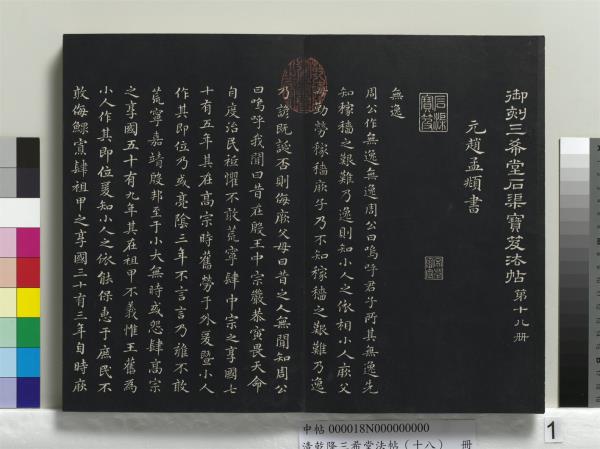 御刻三希堂石渠寶笈法帖第十八冊
元趙孟頫書
石渠寶笈
無逸
周公作無逸無逸周公曰嗚呼君子所其無逸先
知稼穡之艱難乃逸則知小人之依相小人厥父
母勤勞稼穡厥子乃不知稼穡之艱難乃逸
乃諺既誕否則侮厥父母曰昔之人無聞知周公
曰嗚呼我聞曰昔在殷王中宗嚴恭寅畏天命
自度治民祗懼不敢荒寧肆中宗之享國七
十有五年其在高宗時舊勞于外爰暨小人
作其即位乃或亮陰三年不言言乃雍不敢
荒寧嘉靖殷邦至于小大無時或怨肆高宗
之享國五十有九年其在祖甲不義惟王舊為
小人作其即位爰知小人之依能保惠于庶民不
敢侮鰥寡肆祖甲之享國三十有三年自時厥
中帖 000018N000000000
清乾隆三希堂法帖（十八） 冊
1